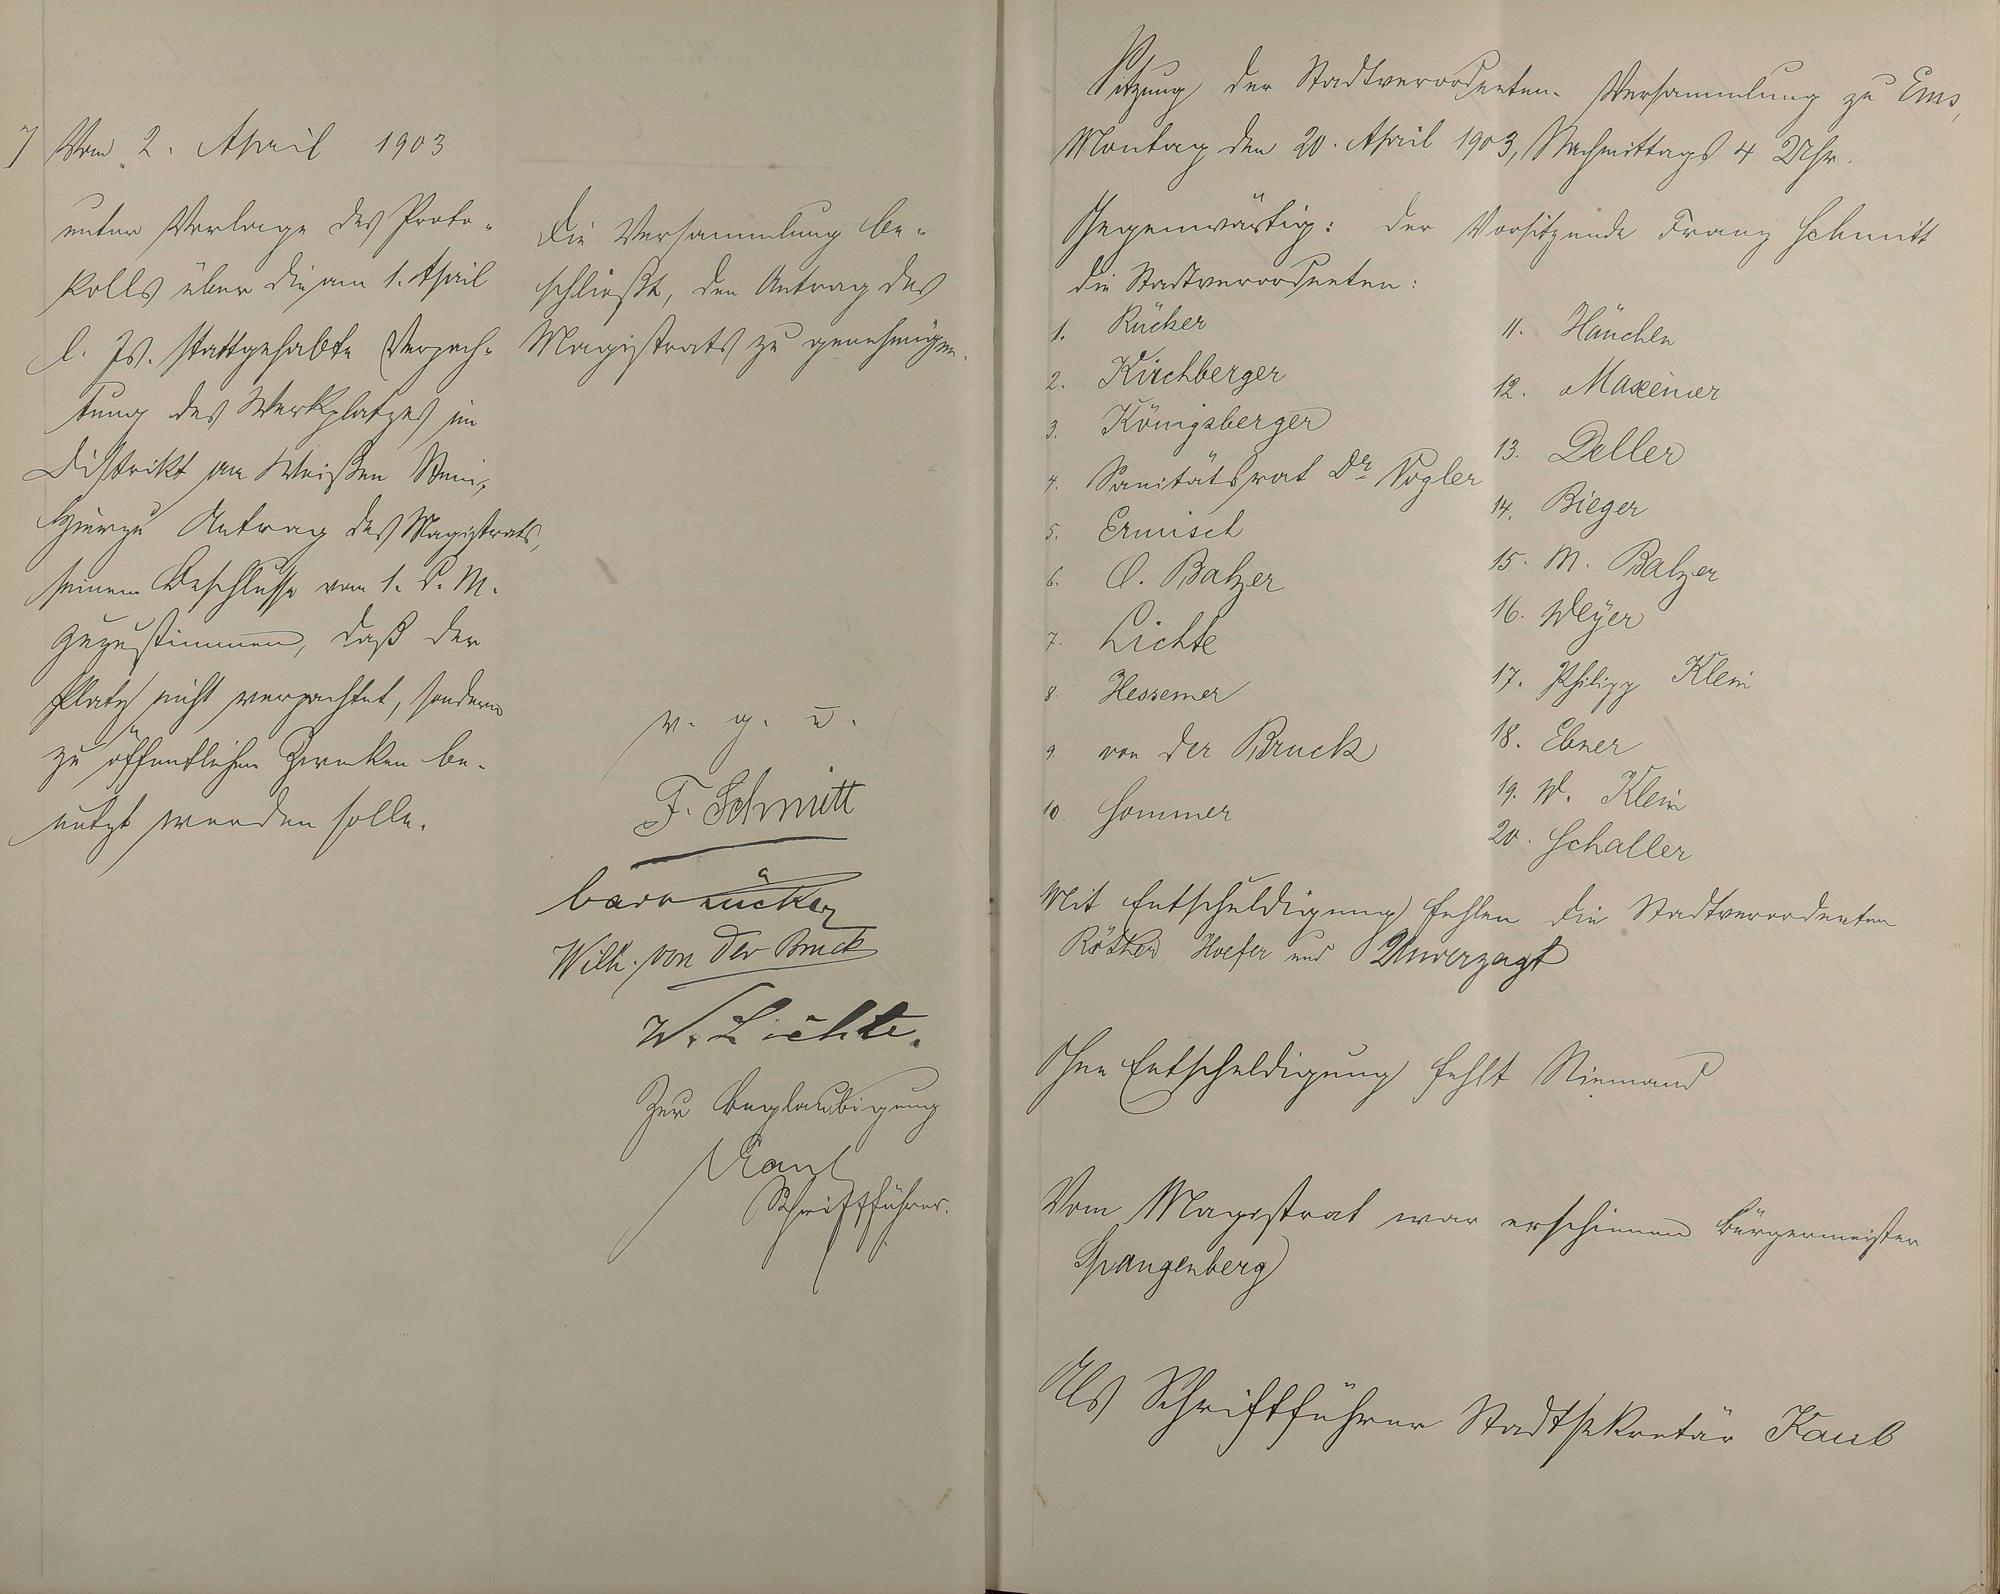 7) Vom 2. April 1903
unter Vorlage des Proto-
kolls über die am 1. April
l. Js. stattgehabte Verpach-
tung des Werkplatzes im
Distrikt am Weißen Stein,
Hierzu Antrag des Magistrats,
seinem Beschlusse vom 1. d. M.
zuzustimmen, daß der
Platz nicht verpachtet, sondern
zu öffentlichen Zwecken be-
nutzt werden solle.
Die Versammlung be-
schließt, den Antrag des
Magistrats zu genehmigen.
v. g. u.
F. Schmitt
Rücker
Wilh. von der Bruck
W. Lichte.
Zur Beglaubigung
Kaul
Schriftführer.
Sitzung der Stadtverordneten-Versammlung zu Ems,
Montag den 20. April 1903, Nachmittags 4 Uhr.
Gegenwärtig: der Vorsitzende Franz Schmitt
die Stadtverordneten:
1. Rücker
2. Kirchberger
3. Königsberger
4. Sanitätsrat Dr Vogler
5. Ermisch
6. O. Balzer
7. Lichte
8. Hessemer
9. von der Bruck
10. Sommer
11. Häuchen
12. Maxeiner
13. Deller
14. Bieger
15. M. Balzer
16. Weyer
17. Philipp Klein
18. Ebner
19. W. Klein
20. Schaller
Mit Entschuldigung fehlen die Stadtverordneten
Röther, Hoefer und Unverzagt
Ohne Entschuldigung fehlt Niemand
Vom Magistrat war erschienen Bürgermeister
Spangenberg
Als Schriftführer Stadtsekretär Kaul